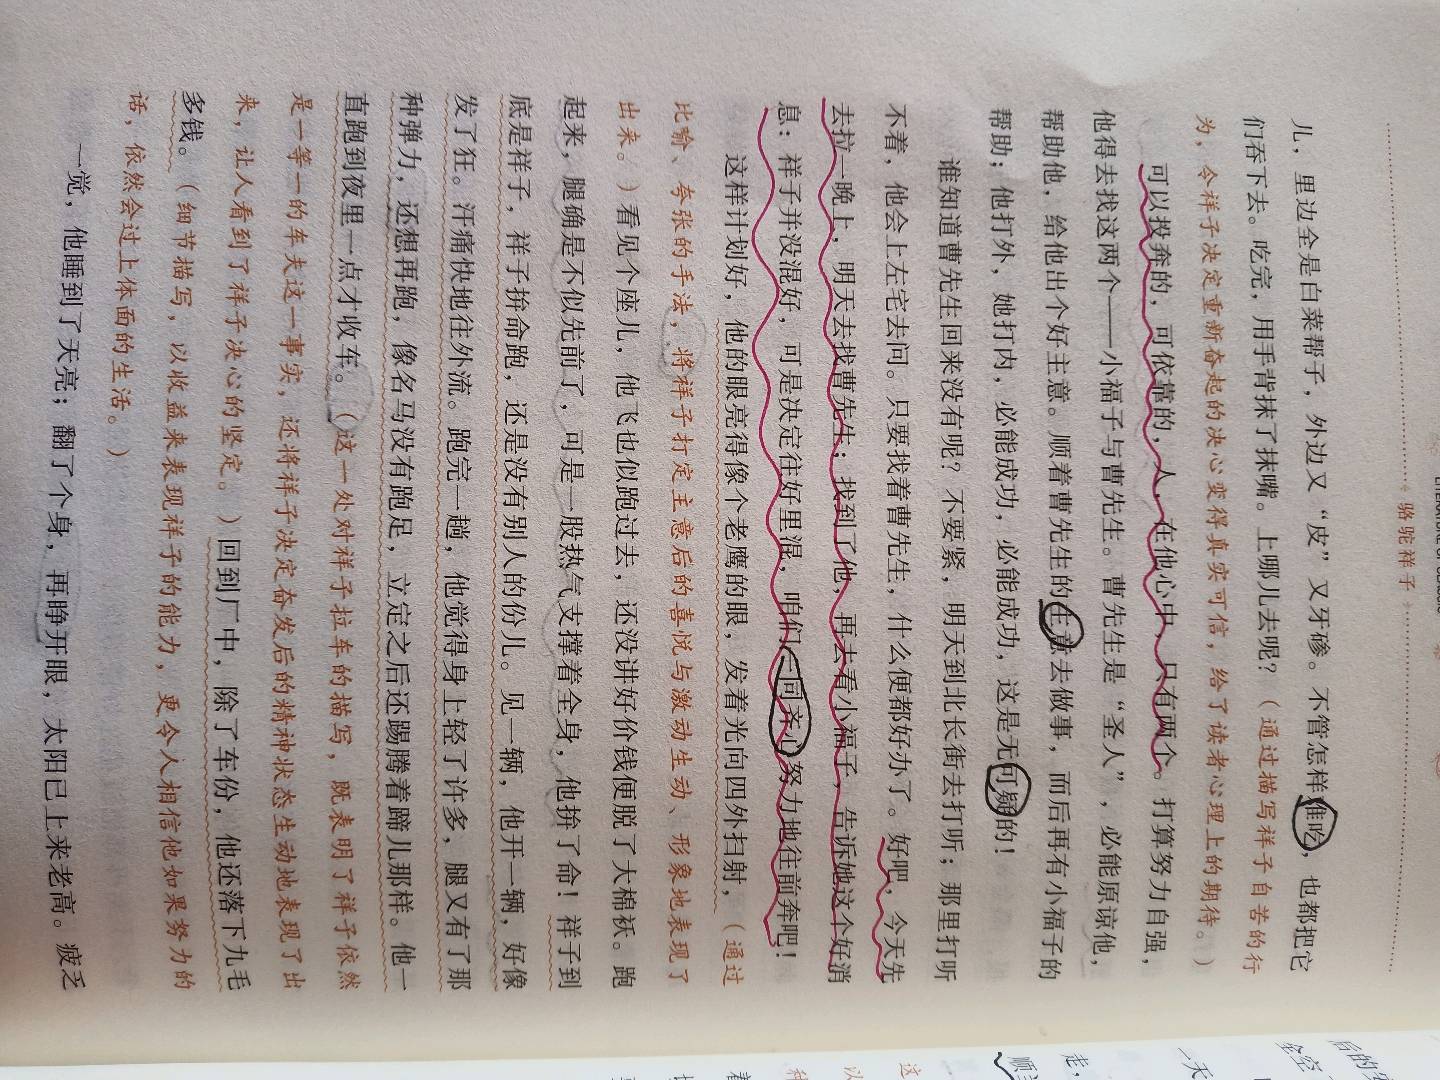 骆驼祥子
儿，里边全是白菜帮子，外边又“皮”又牙碜。不管怎样难吃，也都把它
们吞下去。吃完，用手背抹了抹嘴。上哪儿去呢？（通过描写祥子自苦的行
为，令祥子决定重新奋起的决心变得真实可信，给了读者心理上的期待。）
可以投奔的，可依靠的，人，在他心中，只有两个。打算努力自强，
他得去找这两个——小福子与曹先生。曹先生是“圣人”，必能原谅他，
帮助他，给他出个好主意。顺着曹先生的主意去做事，而后再有小福子的
帮助；他打外，她打内，必能成功，必能成功，这是无可疑的！
谁知道曹先生回来没有呢？不要紧，明天到北长街去打听；那里打听
不着，他会上左宅去问。只要找着曹先生，什么便都好办了。好吧，今天先
去拉一晚上，明天去找曹先生；找到了他，再去看小福子，告诉她这个好消
息：祥子并没混好，可是决定往好里混，咱们一同齐心努力地往前奔吧！
这样计划好，他的眼亮得像个老鹰的眼，发着光向四外扫射，（通过
比喻、夸张的手法，将祥子打定主意后的喜悦与激动生动、形象地表现了
出来。）看见个座儿，他飞也似跑过去，还没讲好价钱便脱了大棉袄。跑
起来，腿确是不似先前了，可是一股热气支撑着全身，他拚了命！祥子到
底是祥子，祥子拚命跑，还是没有别人的份儿。见一辆，他开一辆，好像
发了狂。汗痛快地往外流。跑完一趟，他觉得身上轻了许多，腿又有了那
种弹力，还想再跑，像名马没有跑足，立定之后还踢腾着蹄儿那样。他一
直跑到夜里一点才收车。（这一处对祥子拉车的描写，既表明了祥子依然
是一等一的车夫这一事实，还将祥子决定奋发后的精神状态生动地表现了出
来，让人看到了祥子决心的坚定。）回到厂中，除了车份，他还落下九毛
多钱。（细节描写，以收益来表现祥子的能力，更令人相信他如果努力的
话，依然会过上体面的生活。）
一觉，他睡到了天亮；翻了个身，再睁开眼，太阳已上来老高。疲乏